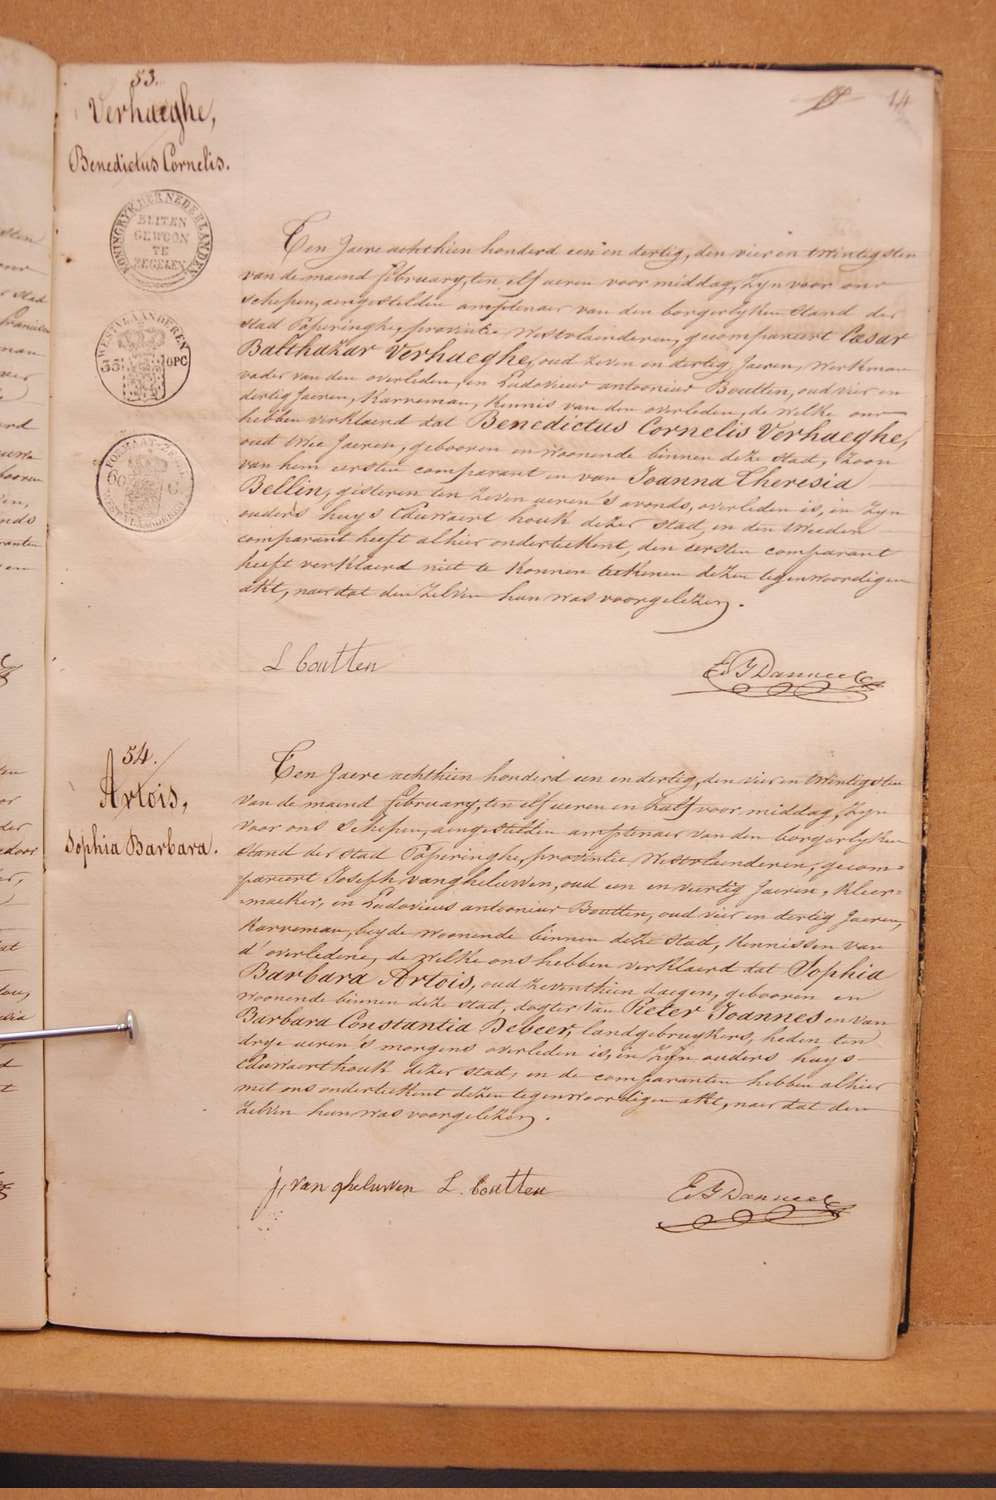 14
53.
Verhaeghe,
Benedictus Cornelis.
KONINGRYK DER NEDERLANDEN
BUITEN
GEWOON
TE
ZEGELEN
WESTVLAANDEREN
33 OPC
Ten Jaere achthien honderd een en dertig, den vier en twintigsten
van de maend february, ten elf ueren voor middag, zyn voor ons
schepen, aengestelden amptenaer van den borgerlyken stand der
stad Poperinghe, provintie Westvlaenderen, gecompareert Cesar
Balthazar Verhaeghe, oud zeven en dertig Jaeren, Werkman
vader van den overleden, en Ludovicus antoonius Boutten, oud vier en
dertig Jaeren, Karreman, Kennis van den overleden, de welke ons
hebben verklaerd dat Benedictus Cornelis Verhaeghe,
oud twee Jaeren, gebooren en woonende binnen deze stad, zoon
van hem eersten comparant en van Joanna Theresia
Bellin, gisteren ten zeven ueren 's avonds, overleden is, in zyn
ouders huys Eduwaert houk dezer stad, en den tweeden
comparant heeft alhier onderteekent, den eersten comparant
heeft verklaerd niet te konnen teekenen dezen tegenwoordigen
akt, naer dat den zelven hun was voorgelezen.
L Boutten
E G Danneel
54.
Artois,
Sophia Barbara.
Ten Jaere achthien honderd een en dertig, den vier en twintigsten
van de maend february, ten elf ueren en half voor middag, zyn
voor ons schepen, aengestelden amptenaer van den borgerlyken
stand der stad Poperinghe, provintie Westvlaenderen, gecom=
pareert Joseph vangheluwen, oud een en veertig Jaeren, Kleer=
=maeker, en Ludovicus antoonius Boutten, oud vier en dertig Jaeren,
Karreman, beyde woonende binnen deze stad, Kennissen van
d'overledene, de welke ons hebben verklaerd dat Sophia
Barbara Artois, oud zeventhien daegen, gebooren en
woonende binnen deze stad, dogter van Pieter Joannes en van
Barbara Constantia Debeer, landgebruykers, heden ten
drye ueren 's morgens overleden is, in zyn ouders huys
Eduwaerthouk dezer stad, en de comparanten hebben alhier
met ons onderteekent dezen tegenwoordigen akt, naer dat den
zelven hun was voorgelezen.
j, van gheluwen L. Boutten
E G Danneel